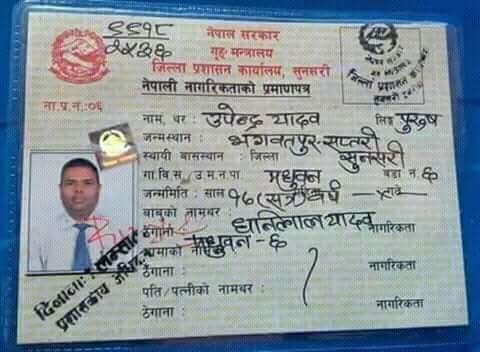 नेपाल सरकार
गृह मन्त्रालय
जिल्ला प्रशासन कार्यालय, सुनसरी
नेपाली नागरिकताको प्रमाणपत्र
ना.प्र.नं.:०६
नाम, थर : उपेन्द्र यादव लिङ्ग पुरुष
जन्मस्थान : भगवतपुर-सप्तरी
स्थायी बासस्थान : जिल्ला सुनसरी
गा.वि.स./उ.म.न.पा. मधुवन वडा नं. ६
जन्ममिति : साल १७ (सत्र) वर्ष गते
बाबुको नामथर : धानिलाल यादव
ठेगाना : मधुवन - ६ नागरिकता
आमाको नामथर :
ठेगाना : नागरिकता
पति/पत्नीको नामथर :
ठेगाना : नागरिकता